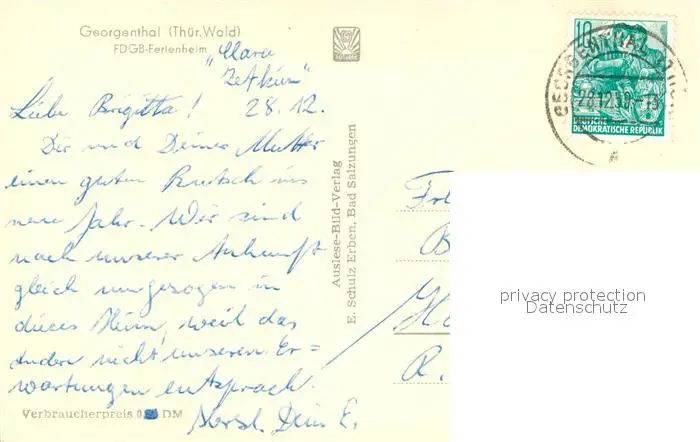 Georgenthal (Thür. Wald)
FDGB-Ferienheim
"Clara
Zetkin"
Liebe Brigitta! 28.12.
Dir und Deiner Mutter
einen guten Rutsch ins
neue Jahr. Wir sind
nach unserer Ankunft
gleich umgezogen in
dieses Heim, weil das
andere nicht unseren Er=
wartungen entsprach.
Herzl. Dein E.
Verbraucherpreis 0 DM
Auslese-Bild-Verlag
E. Schulz Erben, Bad Salzungen
10
DEUTSCHE
DEMOKRATISCHE REPUBLIK
GEORGENTHAL
28.12.59-15
B
R.
privacy protection
Datenschutz